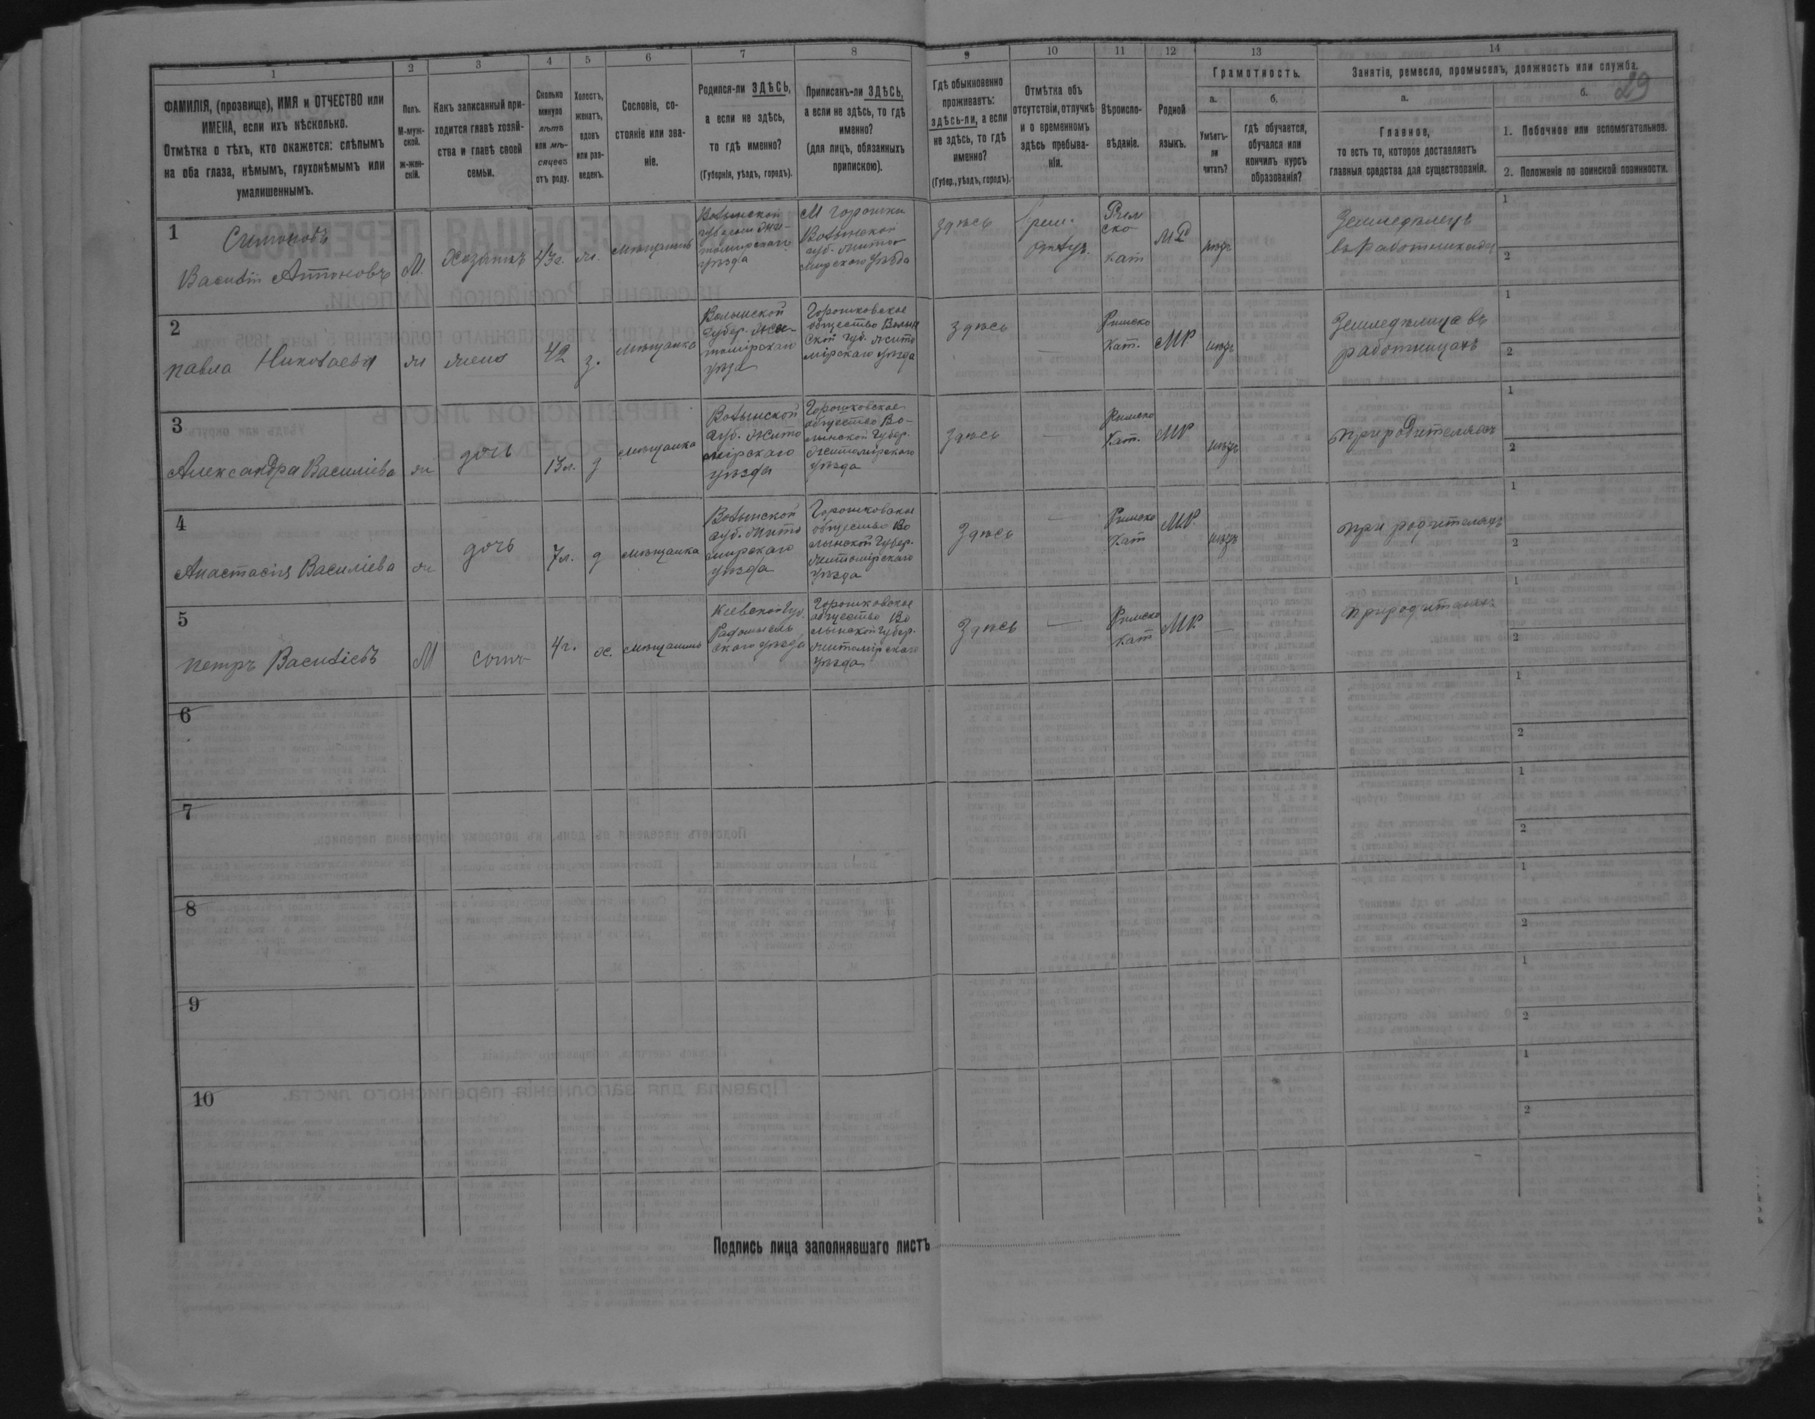 29
1
2
3
4
5
6
7
8
9
10
11
12
13
14
ФАМИЛІЯ, (прозвище), ИМЯ и ОТЧЕСТВО или
ИМЕНА, если ихъ нѣсколько.
Отмѣтка о тѣхъ, кто окажется: слѣпымъ
на оба глаза, нѣмымъ, глухонѣмымъ или
умалишеннымъ.
Полъ.
М-муж-
ской.
ж-жен-
скій.
Какъ записанный при-
ходится главѣ хозяй-
ства и главѣ своей
семьи.
Сколько
минуло
лѣтъ
или мѣ-
сяцевъ
отъ роду.
Холостъ,
женатъ,
вдовъ
или раз-
веденъ.
Сословіе, со-
стояніе или зва-
ніе.
Родился-ли ЗДѢСЬ,
а если не здѣсь,
то гдѣ именно?
(Губернія, уѣздъ, городъ).
Приписанъ-ли ЗДѢСЬ,
а если не здѣсь, то гдѣ
именно?
(для лицъ, обязанныхъ
припискою).
Гдѣ обыкновенно
проживаетъ:
здѣсь-ли, а если
не здѣсь, то гдѣ
именно?
(Губер., уѣздъ, городъ).
Отмѣтка объ
отсутствіи, отлучкѣ
и о временномъ
здѣсь пребыва-
ніи.
Вѣроиспо-
вѣданіе.
Родной
языкъ.
Грамотность.
а.
Умѣетъ-
ли
читать?
б.
гдѣ обучается,
обучался или
кончилъ курсъ
образованія?
Занятіе, ремесло, промыселъ, должность или служба.
а.
Главное,
то есть то, которое доставляетъ
главныя средства для существованія.
б.
1. Побочное или вспомогательное.
2. Положеніе по воинской повинности.
1
Василій Антоновъ
М.
хозяинъ
43 г.
ж.
мѣщанинъ
Волынской
губерніи Жи-
томирскаго
уѣзда
М Горошки
Волынской
губ. Жито
мирскаго уѣзда
здѣсь
Рим
ско
Кат
Земледѣлецъ
въ работникахъ
1
2
2
павла Николаева
ж
жена
42
з.
мѣщанка
Волынской
губер. Жи-
томирскаго
уѣзда
Горошковское
общество Волын
ской губ. Жито
мірскаго уѣзда
здѣсь
—
Римско
Кат.
МР
Земледѣлица въ
работницахъ
1
2
3
Александра Василіева
ж
дочь
13 л.
д
мѣщанка
Волынской
губ. Жито
мірскаго
уѣзда
Горошковское
общество Во-
лынской Губер.
Житомірского
уѣзда
здѣсь
—
Римско
Кат.
МР
при родителяхъ
1
2
4
Анастасія Василіева
ж
дочь
7 л.
д
мѣщанка
Волынской
губ. Жито
мирскаго
уѣзда
Горошковское
общество Во
лынской Губер.
Житомірскаго
уѣзда
здѣсь
—
Римско
Кат
МР.
при родителяхъ
1
2
5
петръ Василіевъ
М
сынъ
4 г.
х.
мѣщанинъ
Кіевской Гу.
Радомысль
скаго уѣзда
Горошковское
общество Во
лынской Губер.
Житомірскаго
уѣзда
здѣсь
—
Римско
Кат
МР.
—
1
2
6
1
2
7
1
2
8
1
2
9
1
2
10
1
2
Подпись лица заполнявшаго листъ